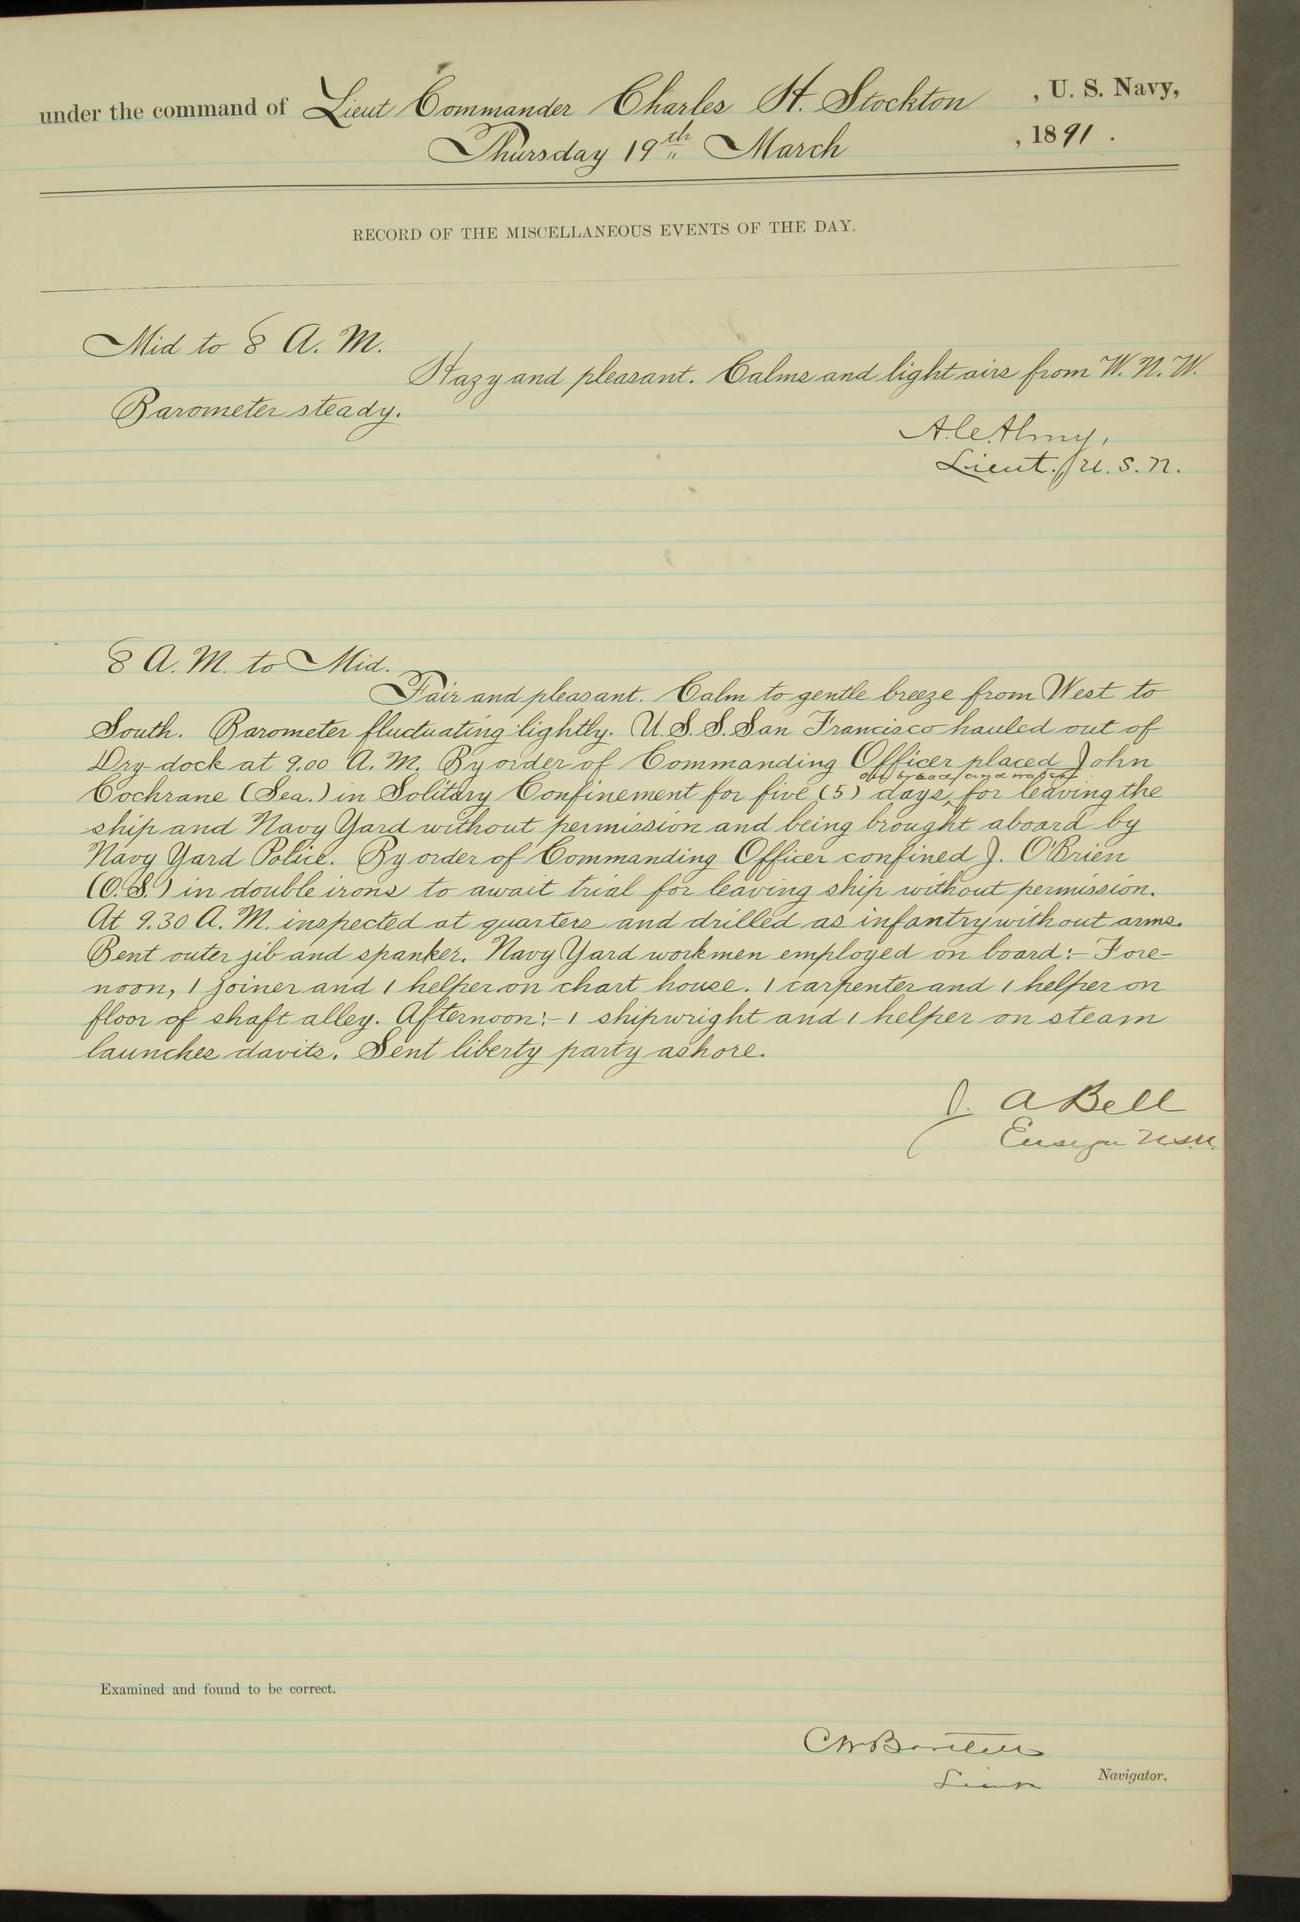 under the command of Lieut Commander Charles H. Stockton, U. S. Navy,
Thursday 19th March, 1891.
RECORD OF THE MISCELLANEOUS EVENTS OF THE DAY.
Mid to 8 A. M.
Hazy and pleasant. Calms and light airs from W. N. W.
Barometer steady.
A. C. Almy,
Lieut., U. S. N.
8 A. M. to Mid.
Fair and pleasant. Calm to gentle breeze from West to
South. Barometer fluctuating lightly. U. S. S. San Francisco hauled out of
Dry-dock at 9.00 A. M. By order of Commanding Officer placed John
on bread and water
Cochrane (Sea.) in Solitary Confinement for five (5) days, for leaving the
ship and Navy Yard without permission and being brought aboard by
Navy Yard Police. By order of Commanding Officer confined J. O'Brien
(O.S.) in double irons to await trial for leaving ship without permission.
At 9.30 A. M. inspected at quarters and drilled as infantry without arms.
Bent outer jib and spanker. Navy Yard workmen employed on board:- Fore-
noon, 1 joiner and 1 helper on chart house. 1 carpenter and 1 helper on
floor of shaft alley. Afternoon:- 1 shipwright and 1 helper on steam
launches davits. Sent liberty party ashore.
J. A Bell
Ensign U.S.N.
Examined and found to be correct.
C W Bartlett
Lieut
Navigator.